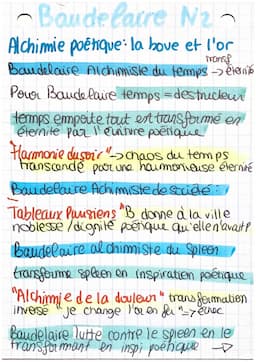 Baudelaire N2
Alchimie poétique: la boue et l'or
Baudelaire Alchimiste du temps transf → éternité
Pour Baudelaire temps = destructeur
temps emporte tout est transformé en
éternité par l'écriture poétique
"Harmonie du soir" → chaos du temps
transcandé par une harmonieuse éternité
Baudelaire Achimiste de société:
Tableaux Parisiens "B donne à la ville
noblesse / dignité poétique qu'elle n'avait P
Baudelaire alchimiste du Spleen
transforme spleen en inspiration poétique
"Alchimie de la douleur" transformation
inverse "je change l'or en fer" → échec
Baudelaire lutte contre le spleen en le
transformant en inspi poétique →